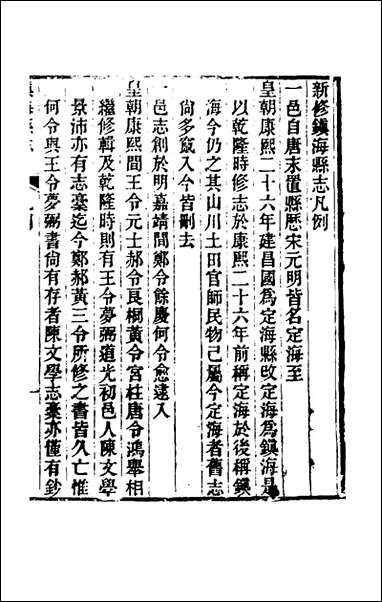 新修鎮海縣志凡例
一邑自唐末置縣歷宋元明皆名定海至
皇朝康熙二十六年建昌國為定海縣改定海為鎮海是
以乾隆時修志於康熙二十六年前稱定海於後稱鎮
海今仍之其山川土田官師民物已屬今定海者舊志
尙多竄入今皆刪去
一邑志創於明嘉靖間鄭令餘慶何令愈遞入
皇朝康熙間王令元士郝令良桐黃令宮柱唐令鴻舉相
繼修輯及乾隆時則有王令夢弼道光初邑人陳文學
景沛亦有志稾迄今鄭郝黃三令所修之書皆久亡惟
何令與王令夢弼書尙有存者陳文學志稾亦僅有鈔